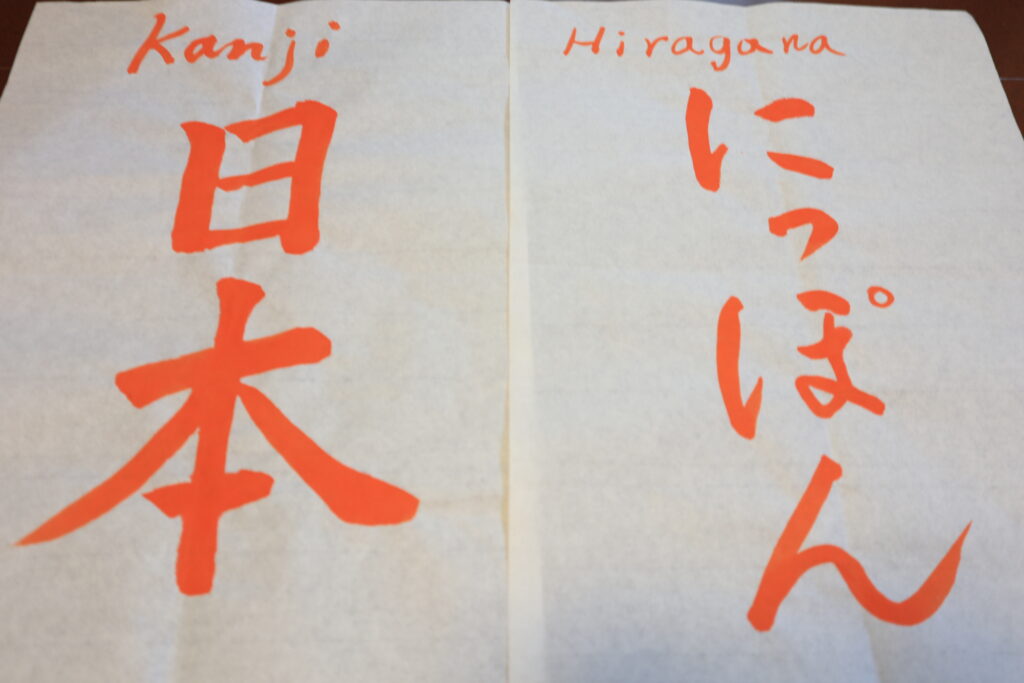 Kanji
日本
Hiragana
にっぽん